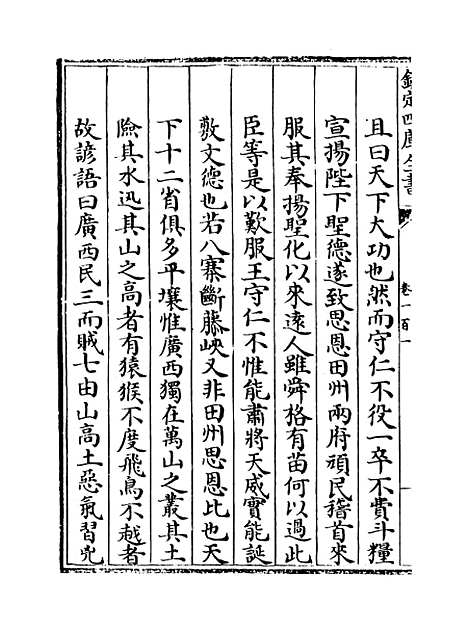 欽定四庫全書
卷一百一
且曰天下大功也然而守仁不役一卒不費斗糧
宣揚陛下聖德遂致思恩田州兩府頑民稽首來
服其奉揚聖化以來遠人雖舜格有苗何以過此
臣等是以歎服王守仁不惟能肅將天威實能誕
敷文德也若八寨斷藤峽又非田州思恩比也天
下十二省俱多平壤惟廣西獨在萬山之叢其土
險其水迅其山之高者有猿猴不度飛鳥不越者
故諺語曰廣西民三而賊七由山高土惡氣習兇